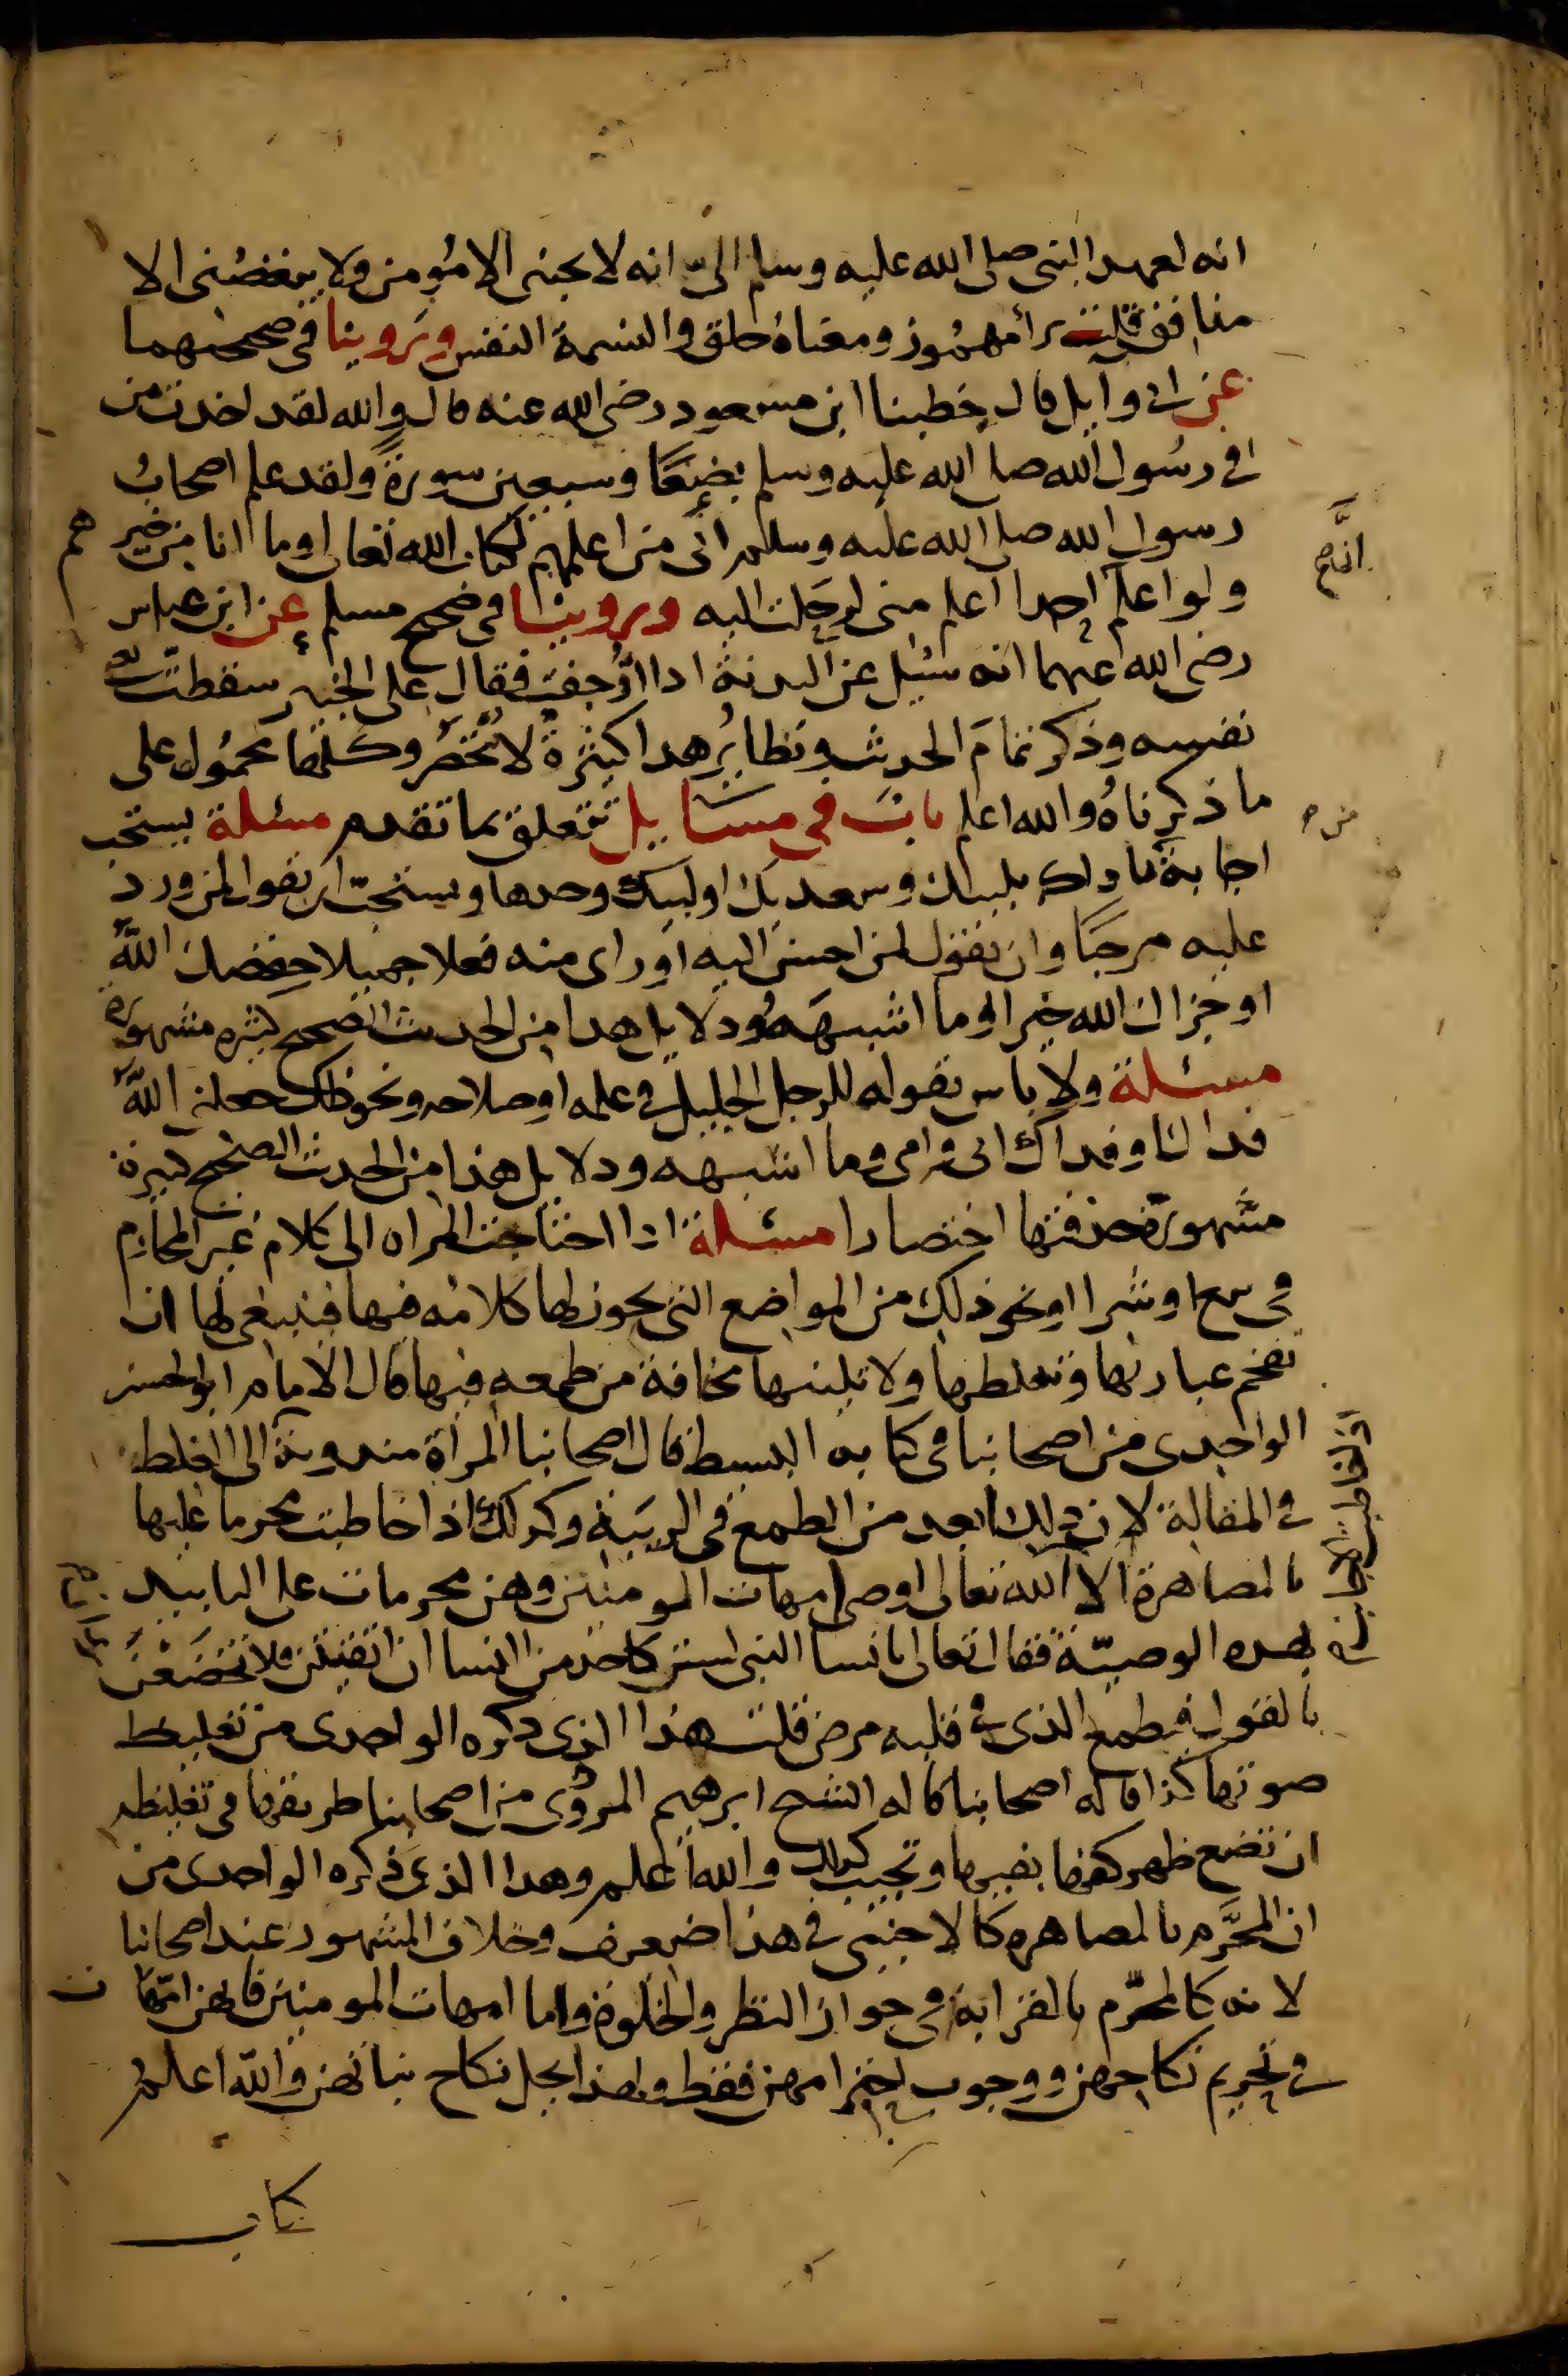 انه لعهد النبي صلى الله عليه وسلم اليّ انه لا يحبني الا مؤمن ولا يبغضني الا
منافق قلت برأ مهموز ومعناه خلق والنسمة النفس وروينا في صحيحهما
عن ابي وايل قال خطبنا ابن مسعود رضي الله عنه قال والله لقد اخدت من
في رسول الله صلى الله عليه وسلم بضعًا وسبعين سورة ولقد علم اصحاب
رسول الله صلى الله عليه وسلم اني من اعلمهم بكتاب الله تعالى وما انا من خيرهم
ولو اعلم احدا اعلم مني لرحلت اليه وروينا في صحيح مسلم عن ابن عباس
رضي الله عنهما انه سئيل عن البدنة ادا ازحفت فقال على الخبير سقطت يعني
نفسه وذكر تمام الحديث ونظاير هدا كثيرة لا تنحصر وكلها محمول على
ما ذكرناه والله اعلم باب في مسايل تتعلق بما تقدم مسئلة يستحب
اجابة ناداك بلبيك وسعديك او لبيك وحدها ويستحبّ ان يقول لمن ورد
عليه مرحبًا وان يقول لمن احسن اليه او راى منه فعلا جميلا حفظك الله
او جزاك الله خيرا وما اشبهه ودلايل هدا من الحديث الصحيح كثيره مشهوره
مسئلة ولا باس بقوله للرجل الجليل في علمه او صلاحه ونحو ذلك جعلني الله
فداك او فداك ابي وامي وما اشبهه ودلايل هذا من الحديث الصحيح كثيرة
مشهورة حذفتها اختصارا مسئلة ادا احتاجت المراه الى كلام غير المحارم
في بيع او شرا او نحو ذلك من المواضع التي يجوز لها كلامه فيها فينبغي لها ان
تفخم عبارتها وتغلظها ولا تلينها مخافة من طمعه فيها قال الامام ابو الحسن
الواحدي من اصحابنا في كتابه البسيط قال اصحابنا المرأة مندوبة الى الغلظة
في المقالة لان ذلك ابعد من الطمع في الريبة وكدلك اذا خاطبت محرما عليها
بالمصاهرة الا الله تعالى اوصى امهات المومنين وهن محرمات على التابيد
بهده الوصيّة فقال تعالى يا نسا النبي لستن كاحد من النسا ان اتقيتن فلا تخضعن
بالقول فيطمع الذي في قلبه مرض قلت هذا الذي ذكره الواحدي من تغليظ
صوتها كذا قاله اصحابنا قاله الشيخ ابرهيم المروزي من اصحابنا طريقها في تغليظه
ان تضع ظهر كفها بفيها وتجيب كدلك والله اعلم وهدا الذي ذكره الواحدي من
ان المحرّم بالمصاهره كالاجنبي في هذا ضعيف وخلاف المشهور عند اصحابنا
لانه كالمحرّم بالقرابة في جواز النظر والخلوة واما امهات المومنين فانهن امهات
في تحريم نكاحهن ووجوب احترامهن فقط ولهذا يحل نكاح بناتهن والله اعلم
كتاب